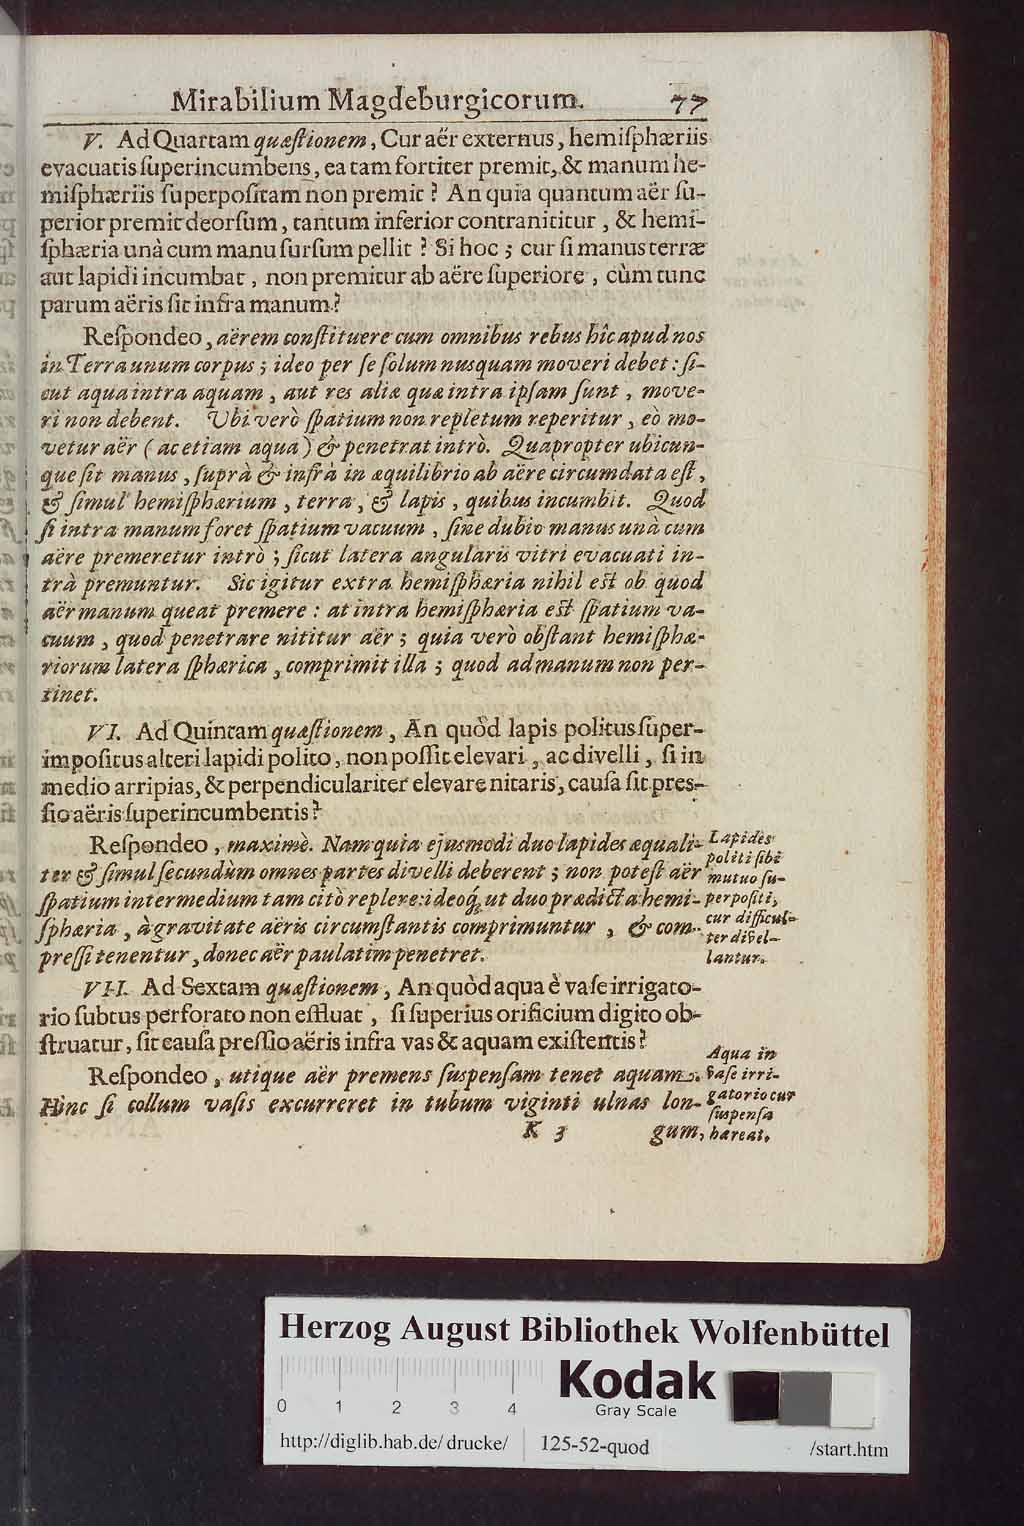 Mirabilium Magdeburgicorum. 77
V. Ad Quartam quæſtionem, Cur aër externus, hemiſphæriis
evacuatis ſuperincumbens, ea tam fortiter premit, & manum he-
miſphæriis ſuperpoſitam non premit? An quia quantum aër ſu-
perior premit deorſum, tantum inferior contranititur, & hemi-
ſphæria unà cum manu ſurſum pellit? Si hoc; cur ſi manus terræ
aut lapidi incumbat, non premitur ab aëre ſuperiore, cùm tunc
parum aëris ſit infra manum?
Reſpondeo, aërem conſtituere cum omnibus rebus hîc apud nos
in Terra unum corpus; ideo per ſe ſolum nusquam moveri debet: ſi-
cut aqua intra aquam, aut res aliæ quæ intra ipſam ſunt, move-
ri non debent. Ubi verò ſpatium non repletum reperitur, eò mo-
vetur aër (ac etiam aqua) & penetrat intrò. Quapropter ubicun-
que ſit manus, ſuprà & infrà in æquilibrio ab aëre circumdata eſt,
& ſimul hemiſphærium, terra, & lapis, quibus incumbit. Quod
ſi intra manum foret ſpatium vacuum, ſine dubio manus unà cum
aëre premeretur intrò; ſicut latera angularis vitri evacuati in-
trà premuntur. Sic igitur extra hemiſphæria nihil eſt ob quod
aër manum queat premere: at intra hemiſphæria eſt ſpatium va-
cuum, quod penetrare nititur aër; quia verò obſtant hemiſphæ-
riorum latera ſphærica, comprimit illa; quod ad manum non per-
tinet.
VI. Ad Quintam quæſtionem, An quòd lapis politus ſuper-
impoſitus alteri lapidi polito, non poſſit elevari, ac divelli, ſi in
medio arripias, & perpendiculariter elevare nitaris, cauſa ſit preſ-
ſio aëris ſuperincumbentis?
Reſpondeo, maximè. Nam quia ejusmodi duo lapides æquali-
ter & ſimul ſecundùm omnes partes divelli deberent; non poteſt aër
ſpatium intermedium tam citò replere: ideoq́; ut duo prædicta hemi-
ſphæria, à gravitate aëris circumſtantis comprimuntur, & com-
preſſi tenentur, donec aër paulatim penetret.
Lapides
politi ſibi
mutuo ſu-
perpoſiti,
cur difficul-
ter divel-
lantur.
VII. Ad Sextam quæſtionem, An quòd aqua è vaſe irrigato-
rio ſubtus perforato non effluat, ſi ſuperius orificium digito ob-
ſtruatur, ſit cauſa preſſio aëris infra vas & aquam exiſtentis?
Reſpondeo, utique aër premens ſuſpenſam tenet aquam.
Hinc ſi collum vaſis excurreret in tubum viginti ulnas lon-
Aqua in
vaſe irri-
gatorio cur
ſuspenſa
hæreat.
K 3 gum,
Herzog August Bibliothek Wolfenbüttel
Kodak
Gray Scale
0 1 2 3 4
http://diglib.hab.de/drucke/ 125-52-quod /start.htm